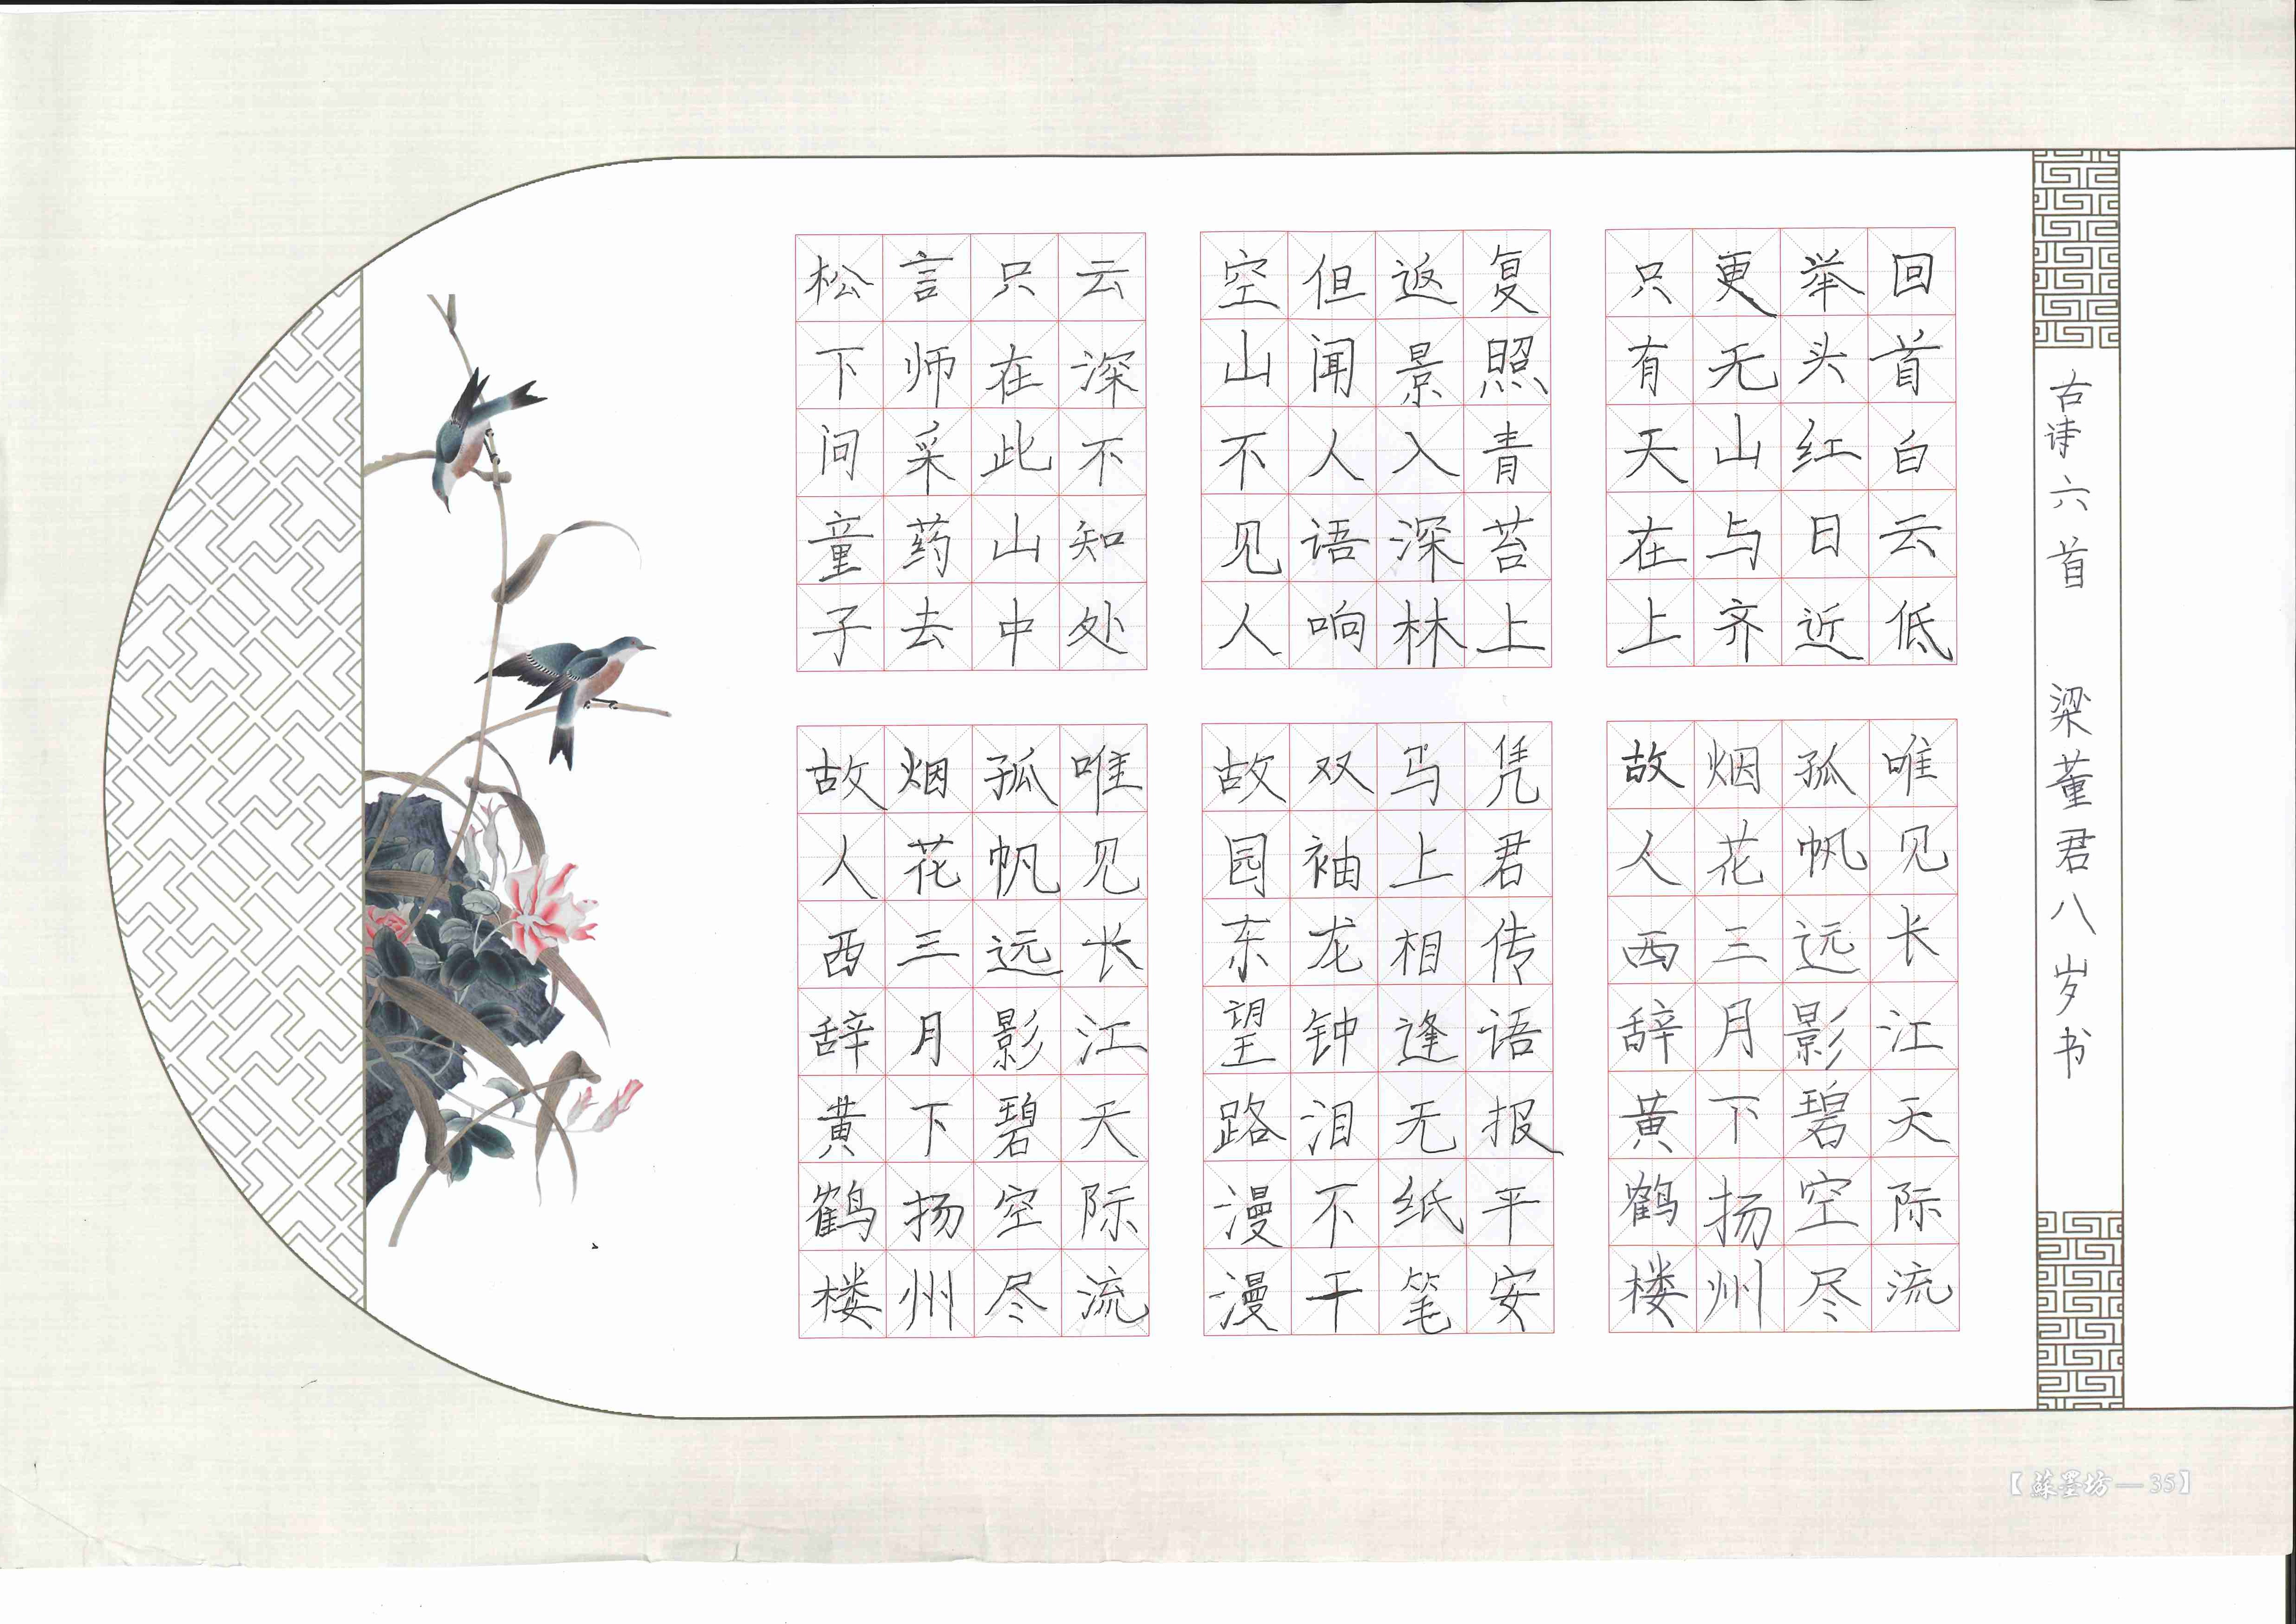 松下问童子
言师采药去
只在此山中
云深不知处
空山不见人
但闻人语响
返景入深林
复照青苔上
只有天在上
更无山与齐
举头红日近
回首白云低
故人西辞黄鹤楼
烟花三月下扬州
孤帆远影碧空尽
唯见长江天际流
故园东望路漫漫
双袖龙钟泪不干
马上相逢无纸笔
凭君传语报平安
故人西辞黄鹤楼
烟花三月下扬州
孤帆远影碧空尽
唯见长江天际流
古诗六首 梁董君八岁书
【蘇墨坊—35】